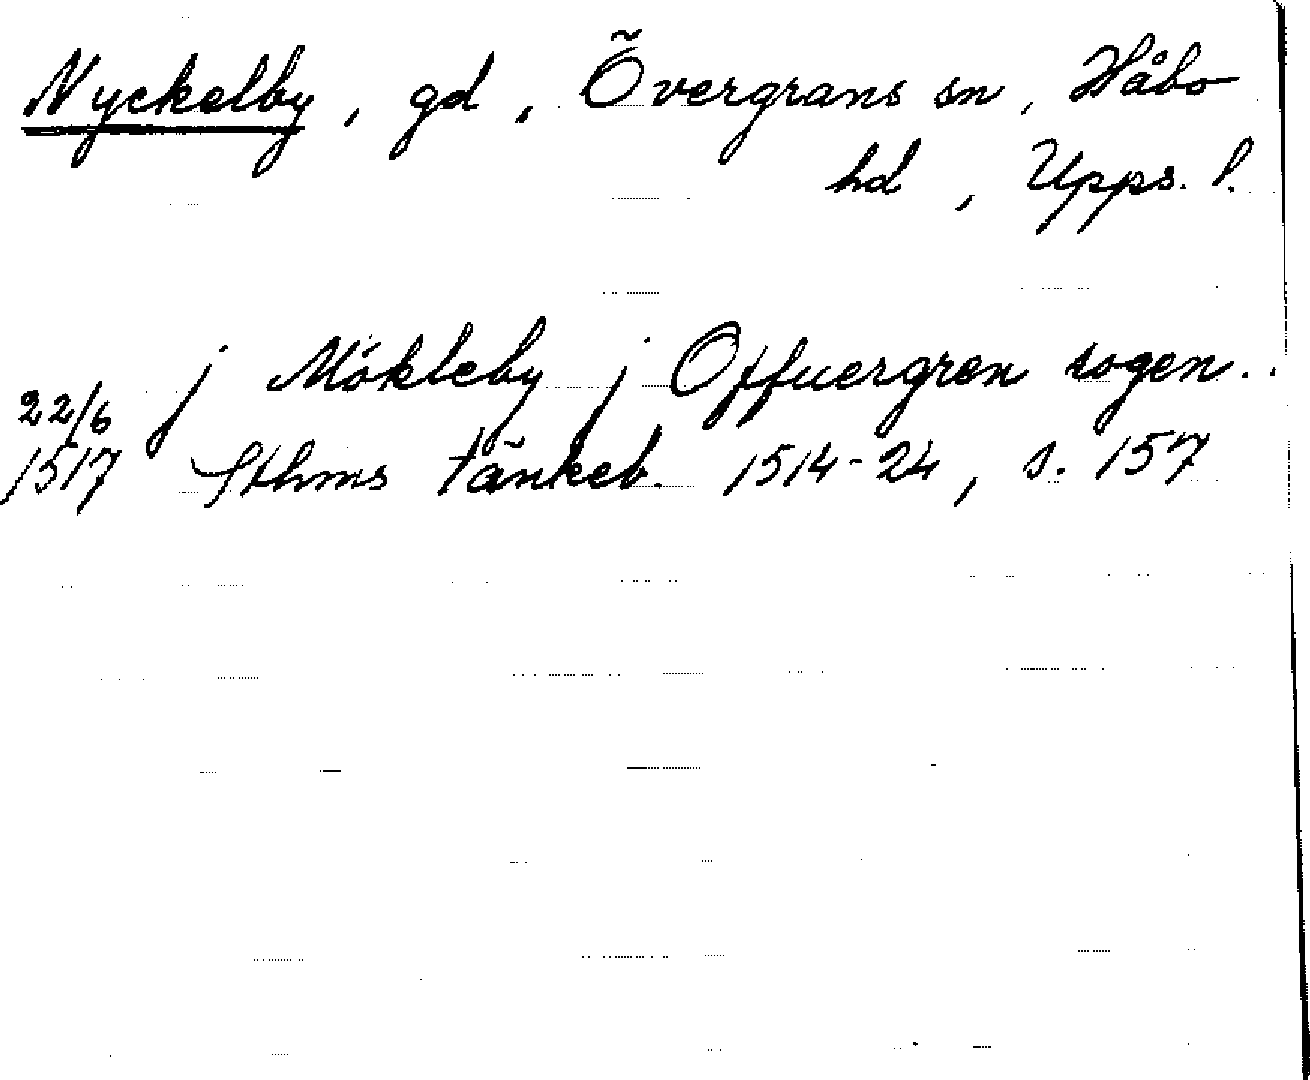 Nyckelby, gd, Övergrans sn, Håbo
hd, Upps. l.
j Mökleby j Offuergren sogen..
22/6
1517 Sthms tänkeb. 1514-24, s. 157